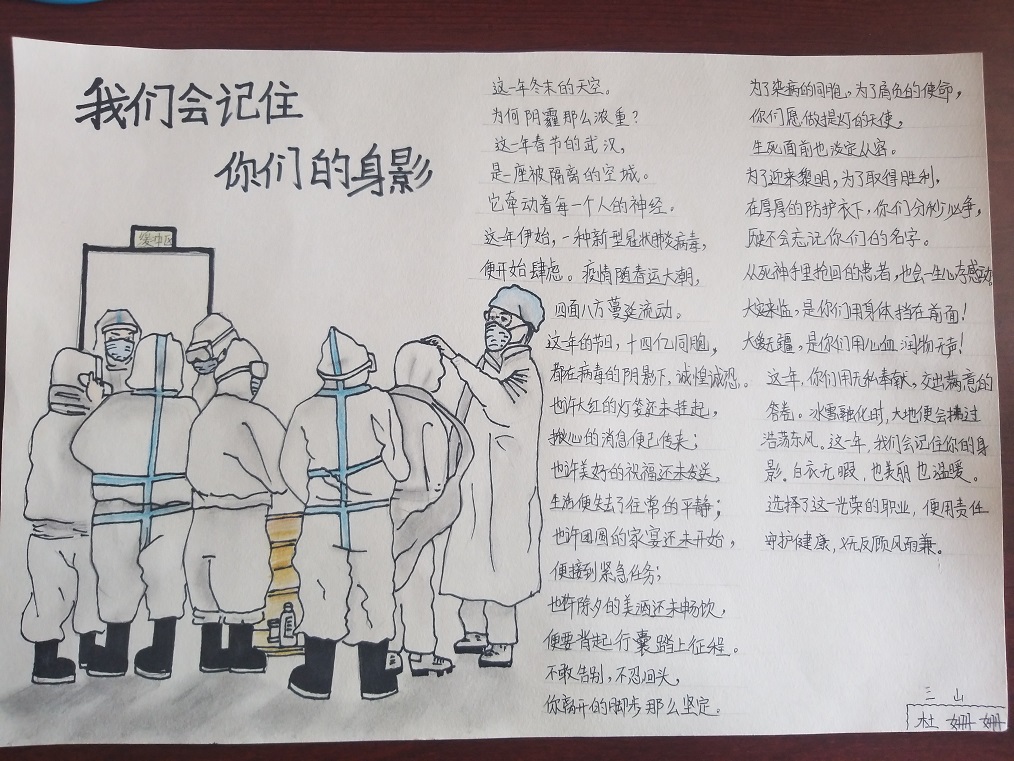 我们会记住
你们的身影
缓冲区
这一年冬末的天空。
为何阴霾那么浓重？
这一年春节的武汉，
是一座被隔离的空城。
它牵动着每一个人的神经。
这一年伊始，一种新型冠状肺炎病毒，
便开始肆虐。疫情随春运大潮，
四面八方蔓延流动。
这一年的节日，十四亿同胞，
都在病毒的阴影下，诚惶诚恐。
也许大红的灯笼还未挂起，
揪心的消息便已传来；
也许美好的祝福还未发送，
生活便失去了往常的平静；
也许团圆的家宴还未开始，
便接到紧急任务；
也许除夕的美酒还未畅饮，
便要背起行囊踏上征程。
不敢告别，不忍回头，
你离开的脚步那么坚定。
为了染病的同胞，为了肩负的使命，
你们愿做提灯的天使，
生死面前也淡定从容。
为了迎来黎明，为了取得胜利，
在厚厚的防护衣下，你们分秒必争，
历史不会忘记你们的名字。
从死神手里抢回的患者，也会一生心存感动。
大灾来临，是你们用身体挡在前面！
大爱无疆，是你们用心血润物无声！
这一年，你们用无私奉献，交出满意的
答卷。冰雪融化时，大地便会拂过
浩荡东风。这一年，我们会记住你的身
影。白衣无暇，也美丽也温暖。
选择了这一光荣的职业，便用责任
守护健康，义无反顾风雨兼。
三山
杜姗姗